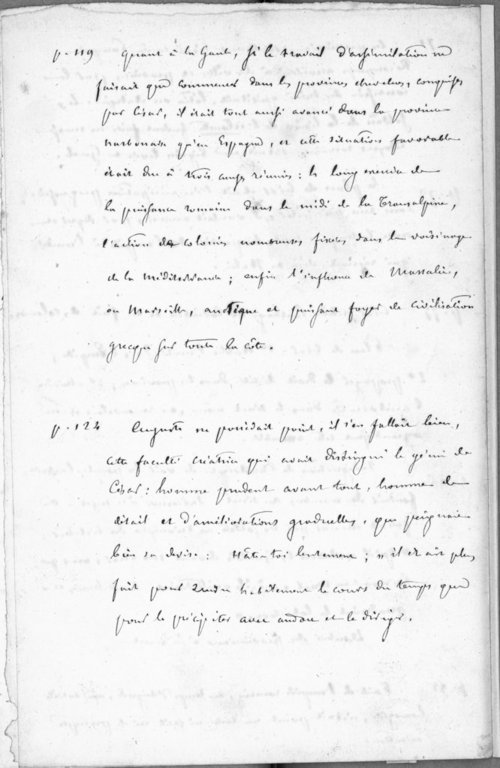 p. 119 Quant à la Gaule, si le travail d'assimilation ne
faisait que commencer dans les provinces chevelues, conquises
par César, il était tout aussi avancé dans la province
narbonaise qu'en Espagne, et cette situation favorable
était due à trois causes réunies : le long exercice de
la puissance romaine dans le midi de la Transalpine,
l'action de colonies nombreuses fixées dans le voisinage
de la Méditerranée ; enfin l'influence de Massalie,
ou Marseille, antique et puissant foyer de civilisation
grecque sur toute la côte.
p. 124 Auguste ne possédait point, il s'en fallait bien,
cette faculté créatrice qui avait distingué le génie de
César : homme prudent avant tout, homme de
détail et d'améliorations graduelles, que peignait
bien sa devise : Hâte-toi lentement ; » il était plus
fait pour suivre habilement le cours du temps que
pour le précipiter avec audace et le diriger.